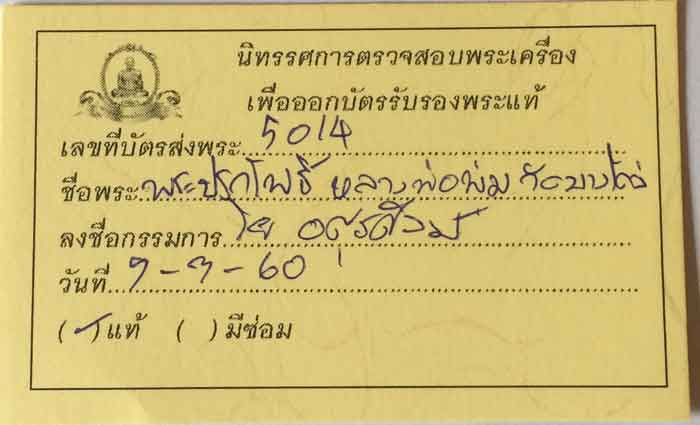 นิทรรศการตรวจสอบพระเครื่อง
เพื่อออกบัตรรับรองพระแท้
เลขที่บัตรส่งพระ 5014
ชื่อพระ พระปรกโพธิ์ หลวงพ่อพ่ม วัดบางโคล่
ลงชื่อกรรมการ โย
วันที่ 7-7-60
(✓) แท้ ( ) มีซ่อม